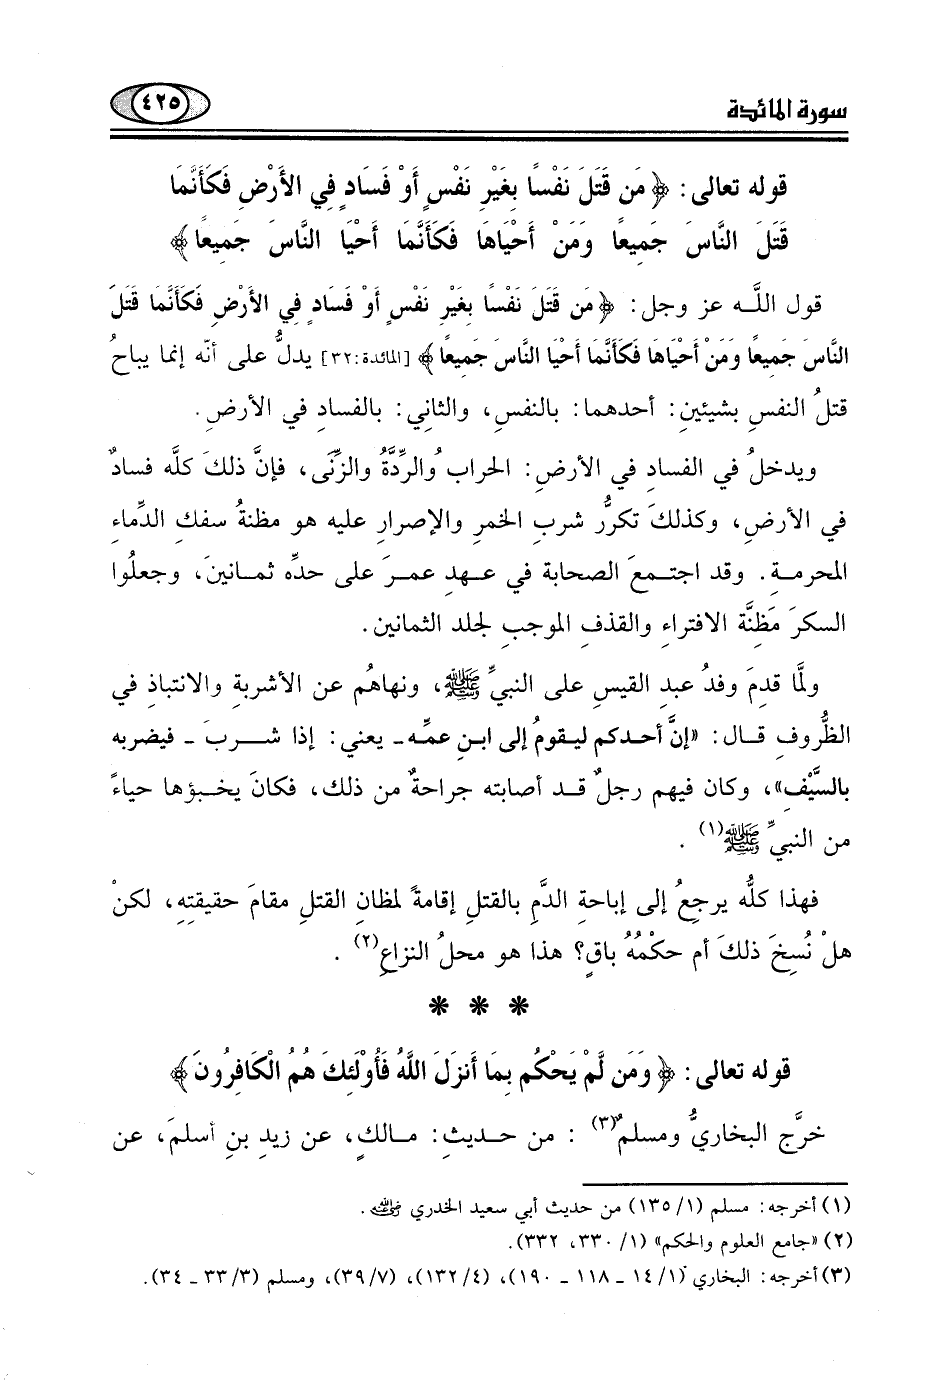 سورة المائدة
٤٢٥
قوله تعالى: ﴿مَن قَتَلَ نَفْسًا بِغَيْرِ نَفْسٍ أَوْ فَسَادٍ فِي الأَرْضِ فَكَأَنَّمَا
قَتَلَ النَّاسَ جَمِيعًا وَمَنْ أَحْيَاهَا فَكَأَنَّمَا أَحْيَا النَّاسَ جَمِيعًا﴾
قول اللَّه عز وجل: ﴿مَن قَتَلَ نَفْسًا بِغَيْرِ نَفْسٍ أَوْ فَسَادٍ فِي الأَرْضِ فَكَأَنَّمَا قَتَلَ
النَّاسَ جَمِيعًا وَمَنْ أَحْيَاهَا فَكَأَنَّمَا أَحْيَا النَّاسَ جَمِيعًا﴾ [المائدة:٣٢] يدلُّ على أنّه إنما يباحُ
قتلُ النفسِ بشيئينِ: أحدهما: بالنفسِ، والثاني: بالفسادِ في الأرضِ.
ويدخلُ في الفسادِ في الأرضِ: الحرابُ والرِّدَّةُ والزِّنَى، فإنَّ ذلكَ كلَّه فسادٌ
في الأرضِ، وكذلكَ تكرُّر شربِ الخمرِ والإصرارِ عليه هو مظنةُ سفكِ الدِّماءِ
المحرمةِ. وقد اجتمعَ الصحابة في عهدِ عمرَ على حدِّه ثمانينَ، وجعلُوا
السكرَ مَظِنَّة الافتراءِ والقذفِ الموجبِ لجلدِ الثمانين.
ولمَّا قدِمَ وفدُ عبدِ القيسِ على النبيِّ ﷺ، ونهاهُم عن الأشربةِ والانتباذِ في
الظُّروفِ قال: «إنَّ أحدكم ليقومُ إلى ابنِ عمِّه ـ يعني: إذا شربَ ـ فيضربه
بالسَّيْفِ»، وكان فيهم رجلٌ قد أصابته جراحةٌ من ذلك، فكانَ يخبؤها حياءً
من النبيِّ ﷺ(١).
فهذا كلُّه يرجعُ إلى إباحةِ الدَّمِ بالقتلِ إقامةً لمظانِ القتلِ مقامَ حقيقتهِ، لكنْ
هلْ نُسِخَ ذلكَ أم حكْمُهُ باقٍ؟ هذا هو محلُ النزاعِ(٢).
* * *
قوله تعالى: ﴿وَمَن لَّمْ يَحْكُم بِمَا أَنزَلَ اللَّهُ فَأُوْلَئِكَ هُمُ الْكَافِرُونَ﴾
خرَّج البخاريُّ ومسلمٌ(٣): من حديثِ: مالكٍ، عن زيدِ بنِ أسلمَ، عن
(١) أخرجه: مسلم (١/ ١٣٥) من حديث أبي سعيد الخدري رضي الله عنه.
(٢) «جامع العلوم والحكم» (١/ ٣٣٠، ٣٣٢).
(٣) أخرجه: البخاري (١/ ١٤ ـ ١١٨ ـ ١٩٠)، (٤/ ١٣٢)، (٧/ ٣٩)، ومسلم (٣/ ٣٣ ـ ٣٤).